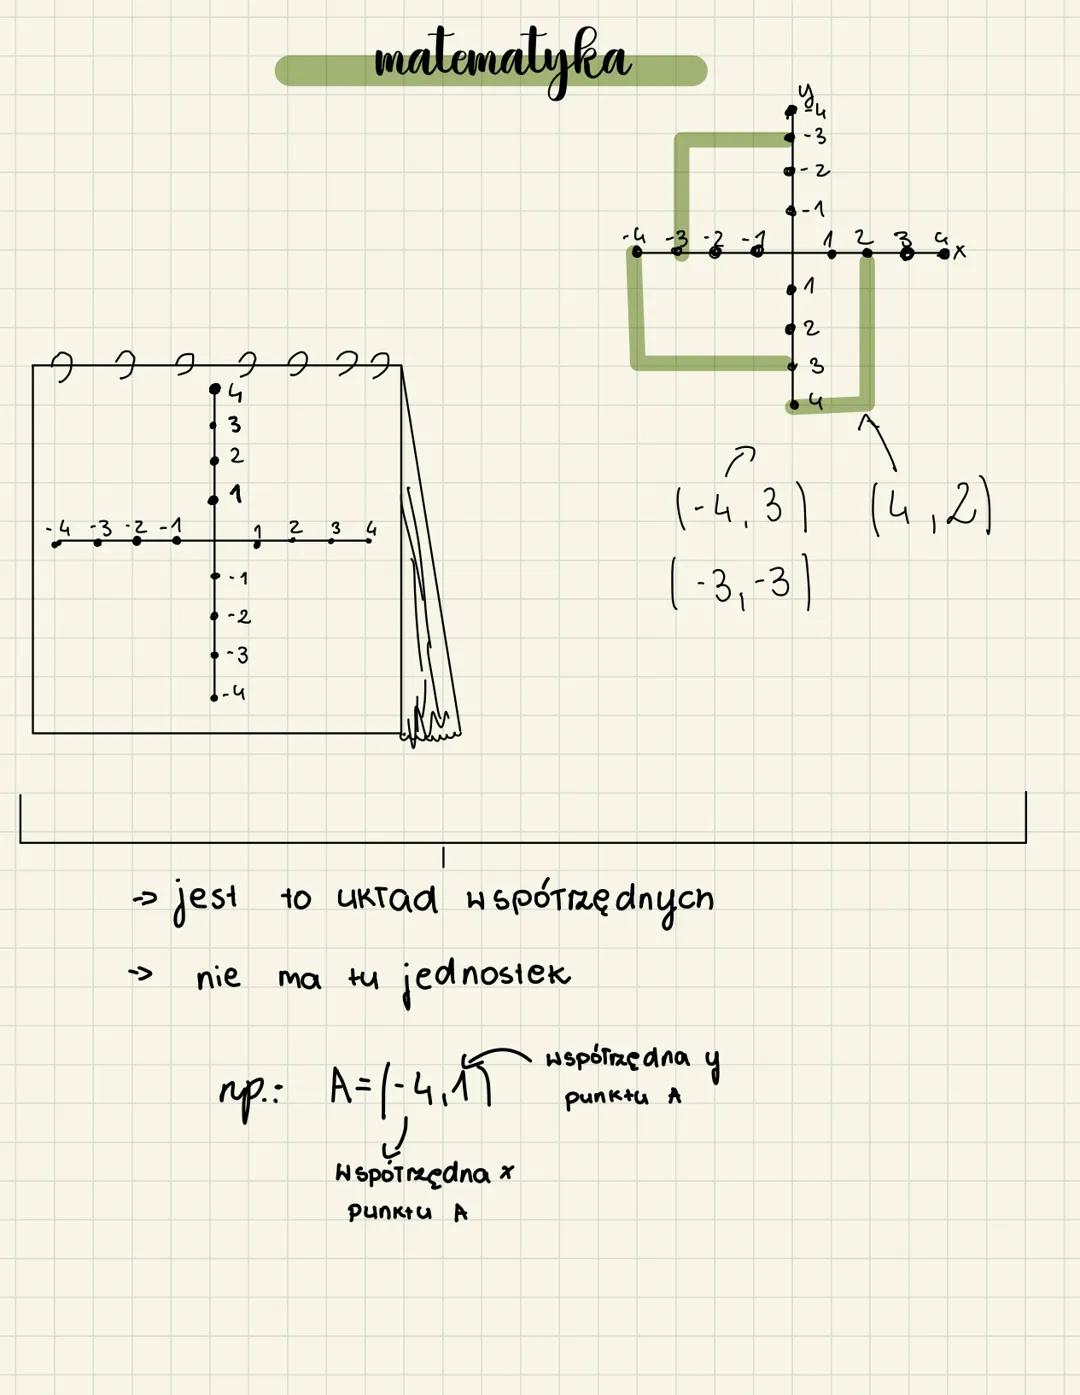 matematyka
y
-4
-3
-2
-1
-4 -3 -2 -1 1 2 3 4 x
1
2
3
4
4
3
2
1
-4 -3 -2 -1 1 2 3 4
-1
-2
-3
-4
(-4,3) (4,2)
(-3,-3)
-> jest to układ współrzędnych
-> nie ma tu jednostek
np.: A=(-4,1)
współrzędna y
punktu A
współrzędna x
punktu A